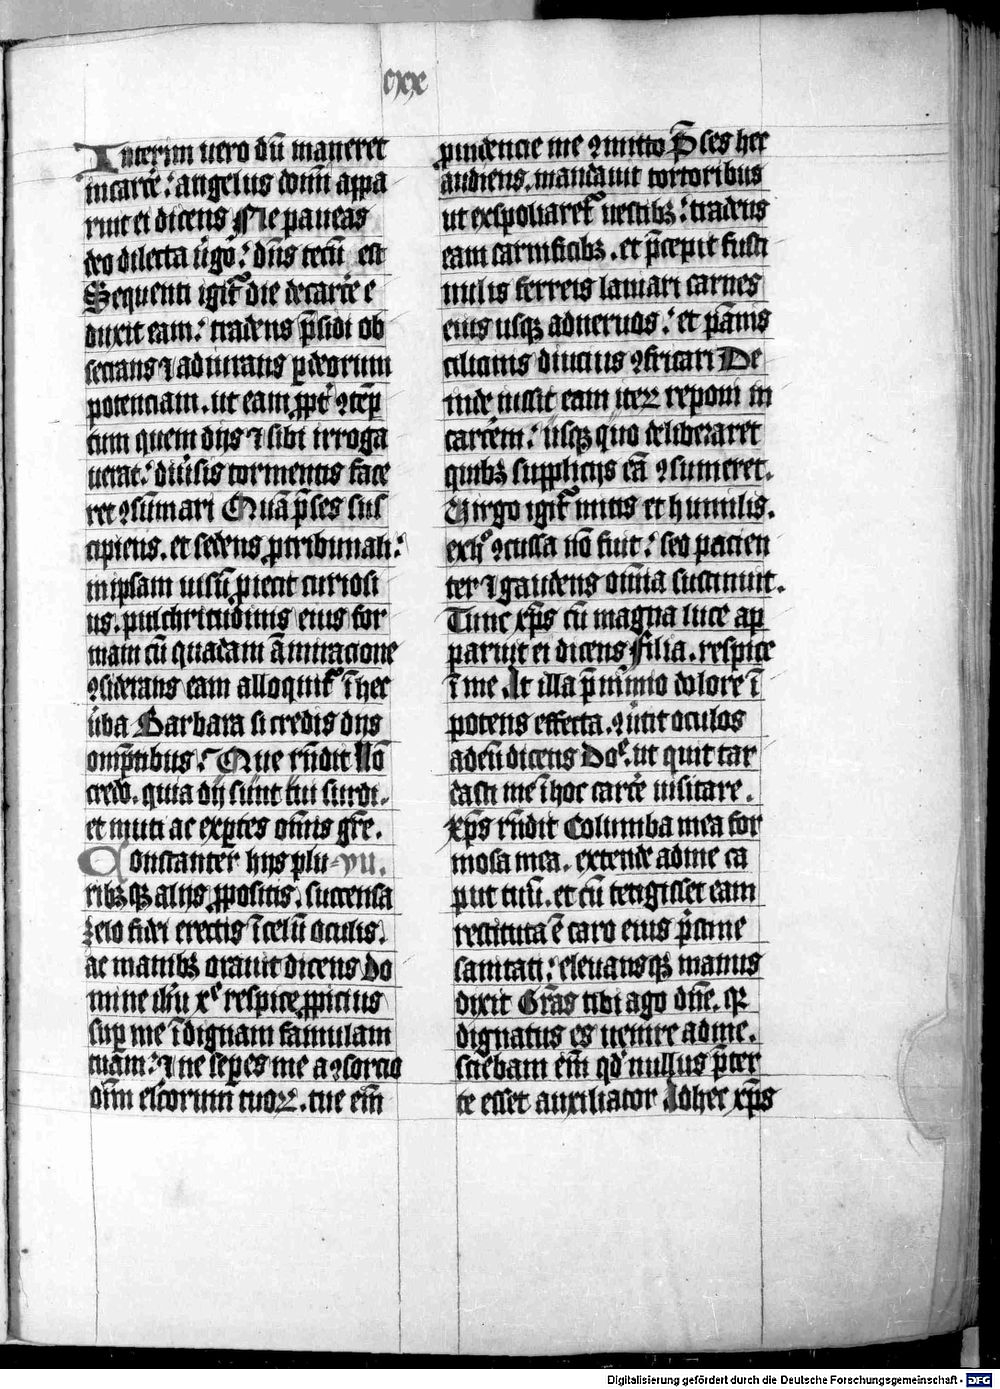 cxx
Interim vero dū maneret
incarcē: angelus domī appa
ruit ei dicens Ne paueas
deo dilecta v̄gō: dn̄s tecū est
Sequenti igit᷑ die decarcē e
duxit eam: tradens p̄sidi ob
secrans ⁊ adiurans ꝑdeorum
potenciam. ut eam ꝓpt᷑ ꝯtēp
tum quem dijs ⁊ sibi irroga
uerat: diūsis tormentis face
ret ꝯsūmari Quā p̄ses sus
cipiens. et sedens ꝓtribunali:
inipsam uisū ꝓiecit curiosi
us. pulchritudinis eius for
mam cū quadam āmiracione
ꝯsiderans eam alloquit᷑ ī hec
ūba Barbara si credis dijs
omp̄tibus? Que rn̄dit Nō
credo. quia dij sunt tui surdi.
et muti ac exptes om̄is grē.
Constanter hijs plu yu.
ribꝫ qꝫ alijs ꝓpositis. succensa
zelo fidei erectis ī celū oculis.
ac manibꝫ orauit dicens Do
mine ihū xe respice ꝓpicius
suꝑ me īdignam famulam
tuam: ⁊ ne seꝑes me a ꝯsorcio
om̄ electorum tuoꝝ. tue em̄
prudencie me ꝯmitto P̄ses hec
audiens. mandauit tortoribus
ut exspoliaret᷑ uestibꝫ: tradens
eam carnificibꝫ. et p̄cepit fusti
nulis ferreis laniari carnes
eius usqꝫ adneruos: et pānis
cilicinis diucius ꝯfricari De
inde iussit eam iteꝝ reponi in
carcēm: usqꝫ quo deliberaret
quibꝫ supplicijs eā ꝯsumeret.
Virgo igit᷑ mitis et humilis.
exhⁱ ꝯcussa nō fuit: sed pacien
ter ⁊ gaudens om̄ia sustinuit.
Tunc xp̄s cū magna luce ap
paruit ei dicens Filia. respice
ī me At illa p̄ nimio dolore ī
potens effecta. ꝯūtit oculos
adeū dicens Doᵉ. ut quit tar
dasti me ī hoc carcē uisitare.
xp̄s rn̄dit Columba mea for
mosa mea. extende adme ca
put tuū. et cū tetigisset eam
restituta ē caro eius p̄stine
sanitati: eleuansqꝫ manus
dixit Grās tibi ago dn̄e. qꝛ
dignatus es uenire adme.
sciebam em̄ qd nullus p̄ter
te esset auxiliator Adhec xp̄s
Digitalisierung gefördert durch die Deutsche Forschungsgemeinschaft - DFG